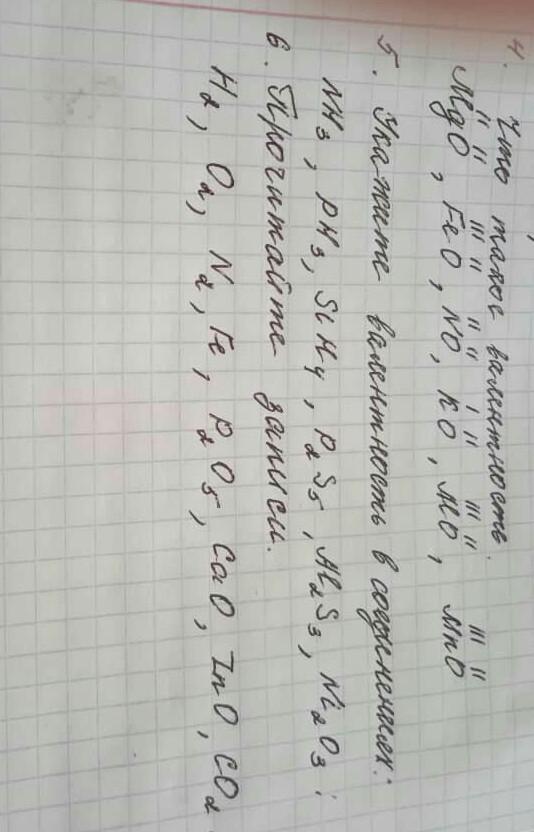 4. Что такое валентность.
II II III II II II I II III II III II
MgO, FeO, NO, KO, AlO, MnO
5. Укажите валентность в соединениях:
NH3, PH3, SiH4, P2S5, Al2S3, Ni2O3;
6. Прочитайте записи.
H2, O2, N2, Fe, P2O5, CaO, ZnO, CO2